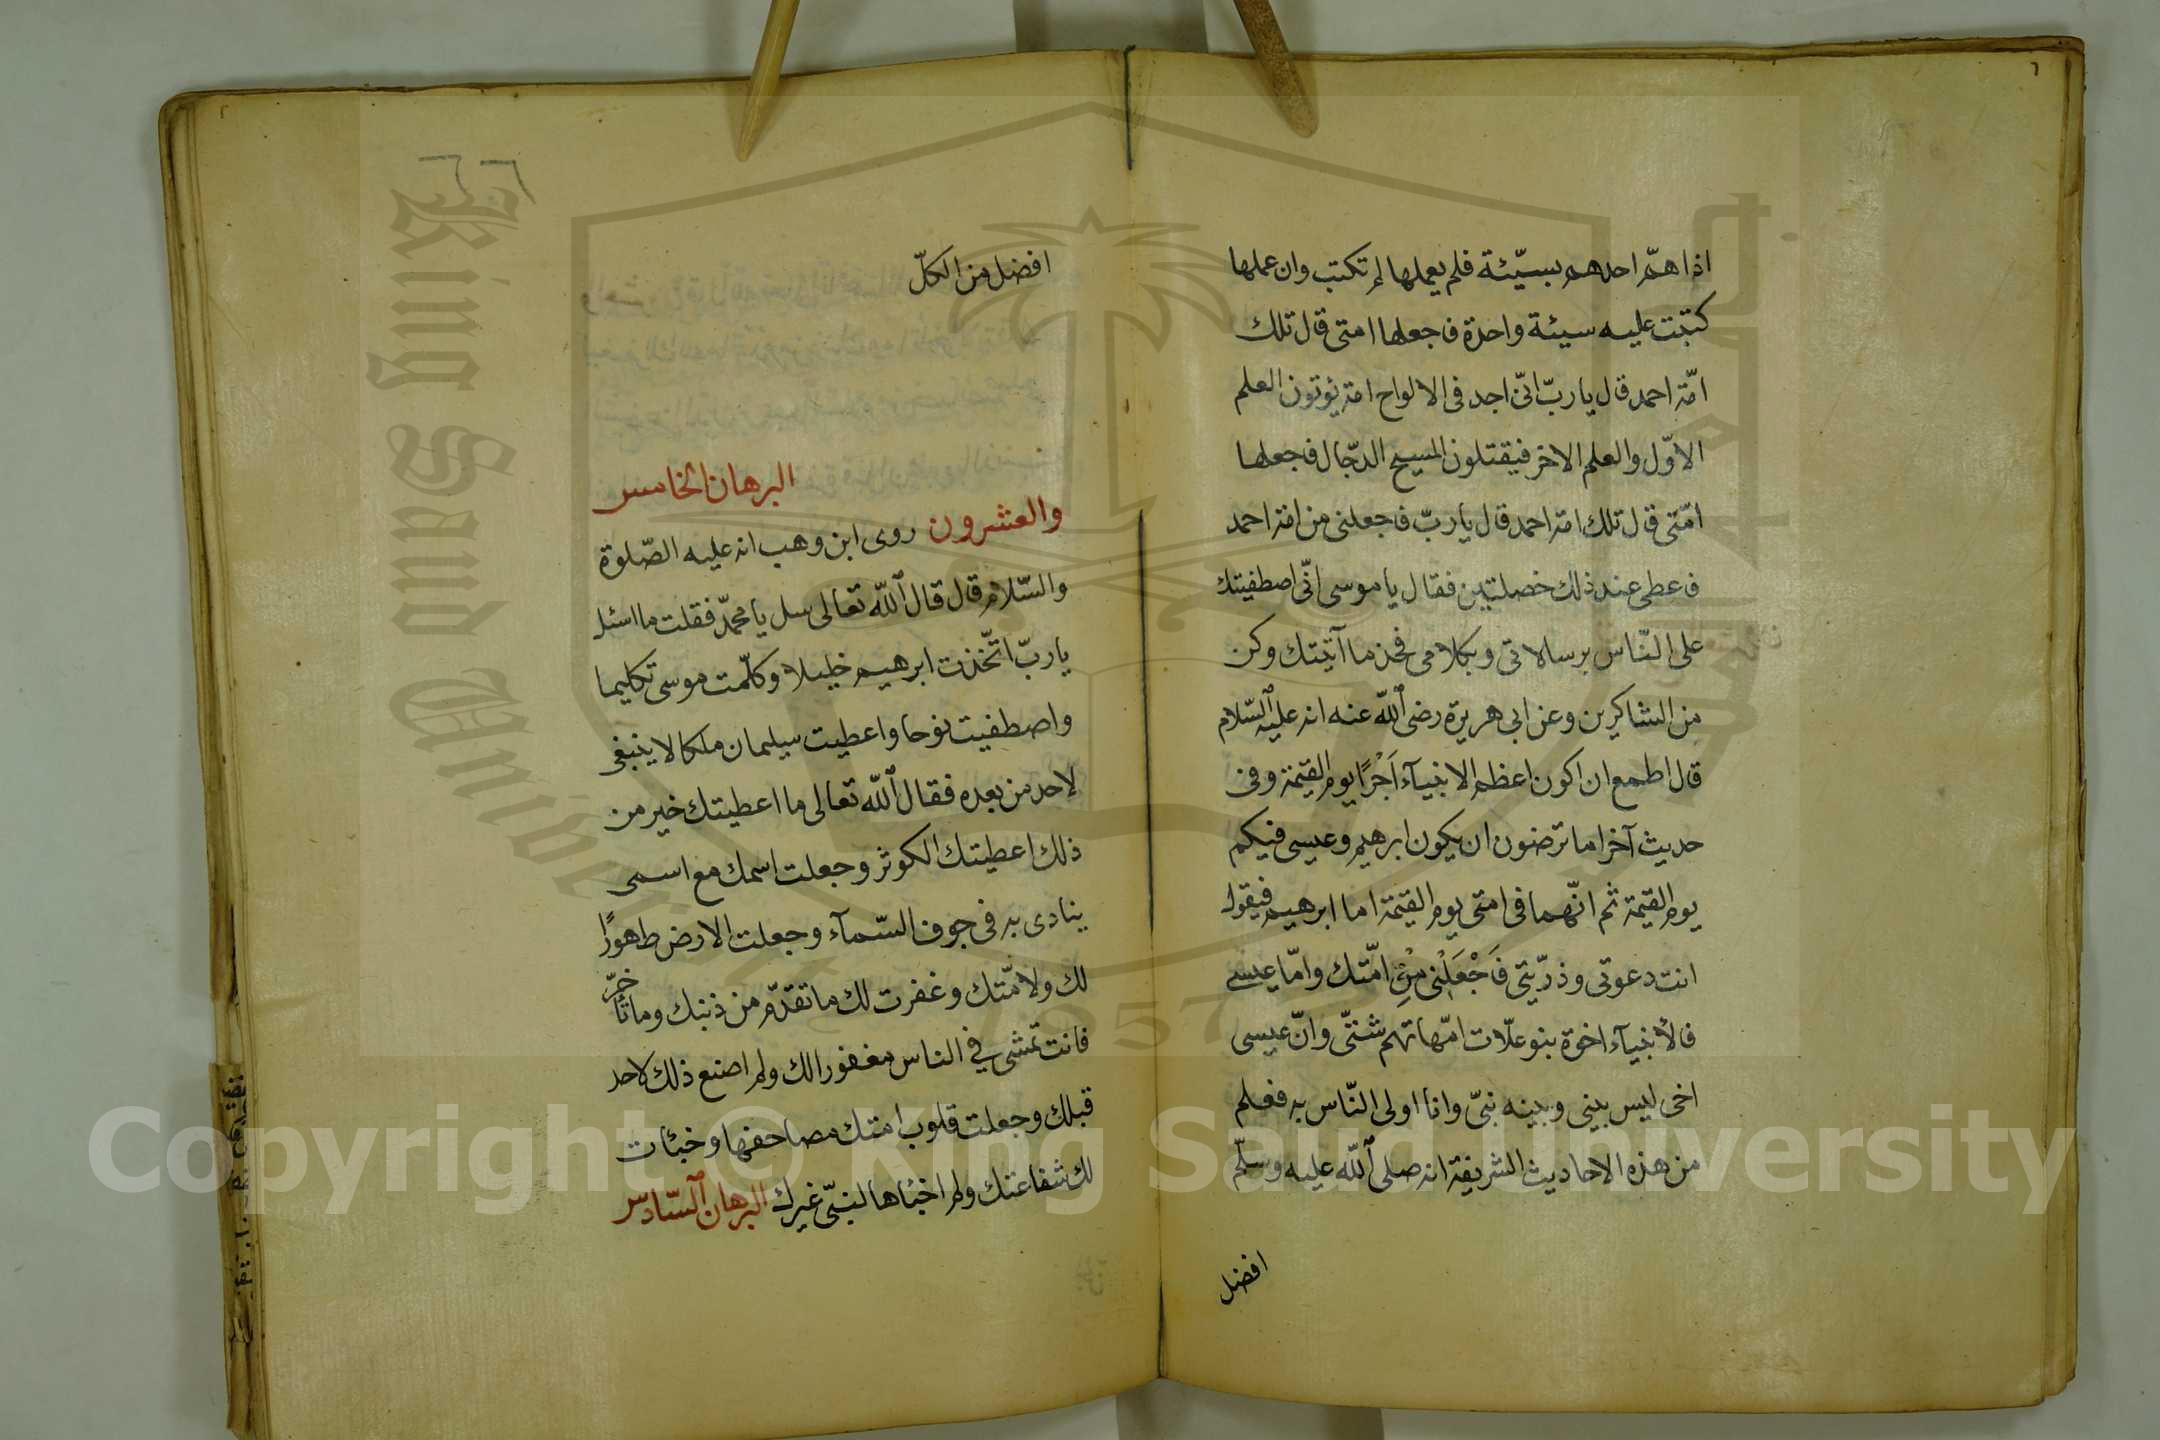 اذا همّ احدهم بسيّئة فلم يعملها لم تكتب وان عملها
كتبت عليه سيئة واحدة فاجعلها امتى قال تلك
امّة احمد قال يا ربّ انّى اجد فى الالواح امة يؤتون العلم
الاوّل والعلم الاخر فيقتلون المسيح الدجّال فاجعلها
امّتى قال تلك امة احمد قال يا ربّ فاجعلنى من امة احمد
فاعطى عند ذلك خصلتين فقال يا موسى انّى اصطفيتك
على النّاس برسالاتى وبكلامى فخذ ما آتيتك وكن
من الشاكرين وعن ابى هريرة رضى الله عنه انه عليه السّلام
قال اطمع ان اكون اعظم الانبيآء اَجْرًا يوم القيمة وفى
حديث آخر اما ترضون ان يكون ابرهيم وعيسى فيكم
يوم القيمة ثم انّهما فى امتى يوم القيمة اما ابرهيم فيقول
انت دعوتى وذرّيتى فَاجْعَلْنى مِنْ امّتك وامّا عيسى
فالأنبيآء اخوة بنو علّات امّهاتهم شتّى وانّ عيسى
اخى ليس بينى وبينه نبىّ وانا اولى النّاس به فعلم
من هذه الاحاديث الشريفة انه صلى الله عليه وسلّم
افضل
افضل من الكلّ
البرهان الخامس
والعشرون روى ابن وهب انه عليه الصّلوة
والسّلام قال قال الله تعالى سل يا محمّد فقلت ما اسئل
يا ربّ اتّخذت ابرهيم خليلا وكلّمت موسى تكليما
واصطفيت نوحا واعطيت سيليمان ملكا لا ينبغى
لاحد من بعده فقال الله تعالى ما اعطيتك خير من
ذلك اعطيتك الكوثر وجعلت اسمك مع اسمى
ينادى به فى جوف السّمآء وجعلت الارض طهورًا
لك ولامّتك وغفرت لك ما تقدّم من ذنبك وما تأخرّ
فانت تمشى في الناس مغفورا لك ولم اصنع ذلك لاحد
قبلك وجعلت قلوب امتك مصاحفها وخبئات
لك شفاعتك ولم اخبئاها لنبىّ غيرك البرهان السّادس
Copyright © King Saud University
King Saud University
1957